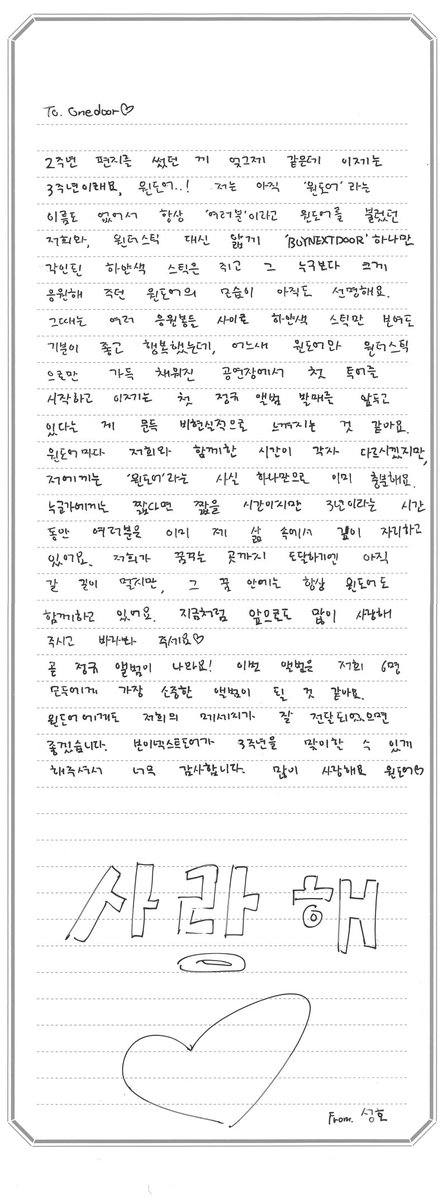 To. Onedoor♡
2주년 편지를 썼던 게 엊그제 같은데 이제는
3주년이래요, 원도어..! 저는 아직 '원도어'라는
이름도 없어서 항상 '여러분'이라고 원도어를 불렀던
저희와, 원더스틱 대신 얇게 'BOYNEXTDOOR' 하나만
각인된 하얀색 스틱을 쥐고 그 누구보다 크게
응원해 주던 원도어의 모습이 아직도 선명해요.
그때는 여러 응원봉들 사이로 하얀색 스틱만 보여도
기분이 좋고 행복했는데, 어느새 원도어와 원더스틱
으로만 가득 채워진 공연장에서 첫 투어를
시작하고 이제는 첫 정규 앨범 발매를 앞두고
있다는 게 문득 비현실적으로 느껴지는 것 같아요.
원도어마다 저희와 함께한 시간이 각자 다르시겠지만,
저에게는 '원도어'라는 사실 하나만으로 이미 충분해요.
누군가에게는 짧다면 짧을 시간이지만 3년이라는 시간
동안 여러분은 이미 제 삶 속에서 깊이 자리하고
있어요. 저희가 꿈꾸는 곳까지 도달하기엔 아직
갈 길이 멀지만, 그 꿈 안에는 항상 원도어도
함께하고 있어요. 지금처럼 앞으로도 많이 사랑해
주시고 바라봐 주세요♡
곧 정규 앨범이 나와요! 이번 앨범은 저희 6명
모두에게 가장 소중한 앨범이 될 것 같아요.
원도어에게도 저희의 메세지가 잘 전달되었으면
좋겠습니다. 보이넥스트도어가 3주년을 맞이할 수 있게
해주셔서 너무 감사합니다. 많이 사랑해요 원도어♡
사랑해
From. 성호